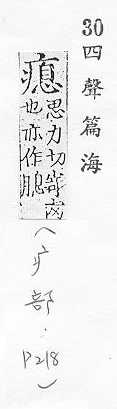 30四聲篇海
瘜
思力切寄肉
也亦作䐖
(疒部.P218)